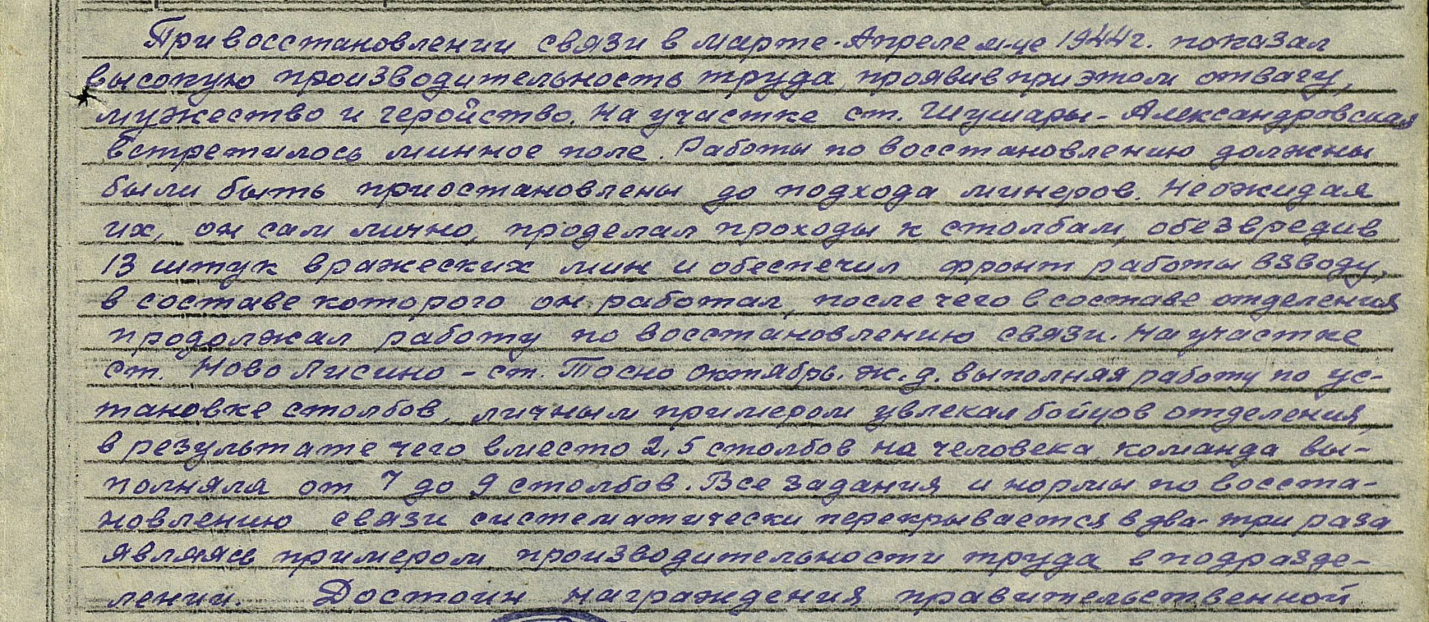 При восстановлении связи в марте-Апреле м-це 1944г. показал
высокую производительность труда, проявив при этом отвагу,
мужество и геройство. На участке ст. Шушары - Александровская
встретилось минное поле. Работы по восстановлению должны
были быть приостановлены до подхода минеров. Неожидая
их, он сам лично, проделал проходы к столбам, обезвредив
13 штук вражеских мин и обеспечил фронт работы взводу,
в составе которого он работал, после чего в составе отделения
продолжал работу по восстановлению связи. На участке
ст. Ново Лисино - ст. Тосно октябрь. ж.д. выполняя работу по ус-
тановке столбов, личным примером увлекал бойцов отделения,
в результате чего вместо 2,5 столбов на человека команда вы-
полняла от 7 до 9 столбов. Все задания и нормы по восста-
новлению связи систематически перекрывается в два-три раза
являясь примером производительности труда в подразде-
лении. Достоин награждения правительственной